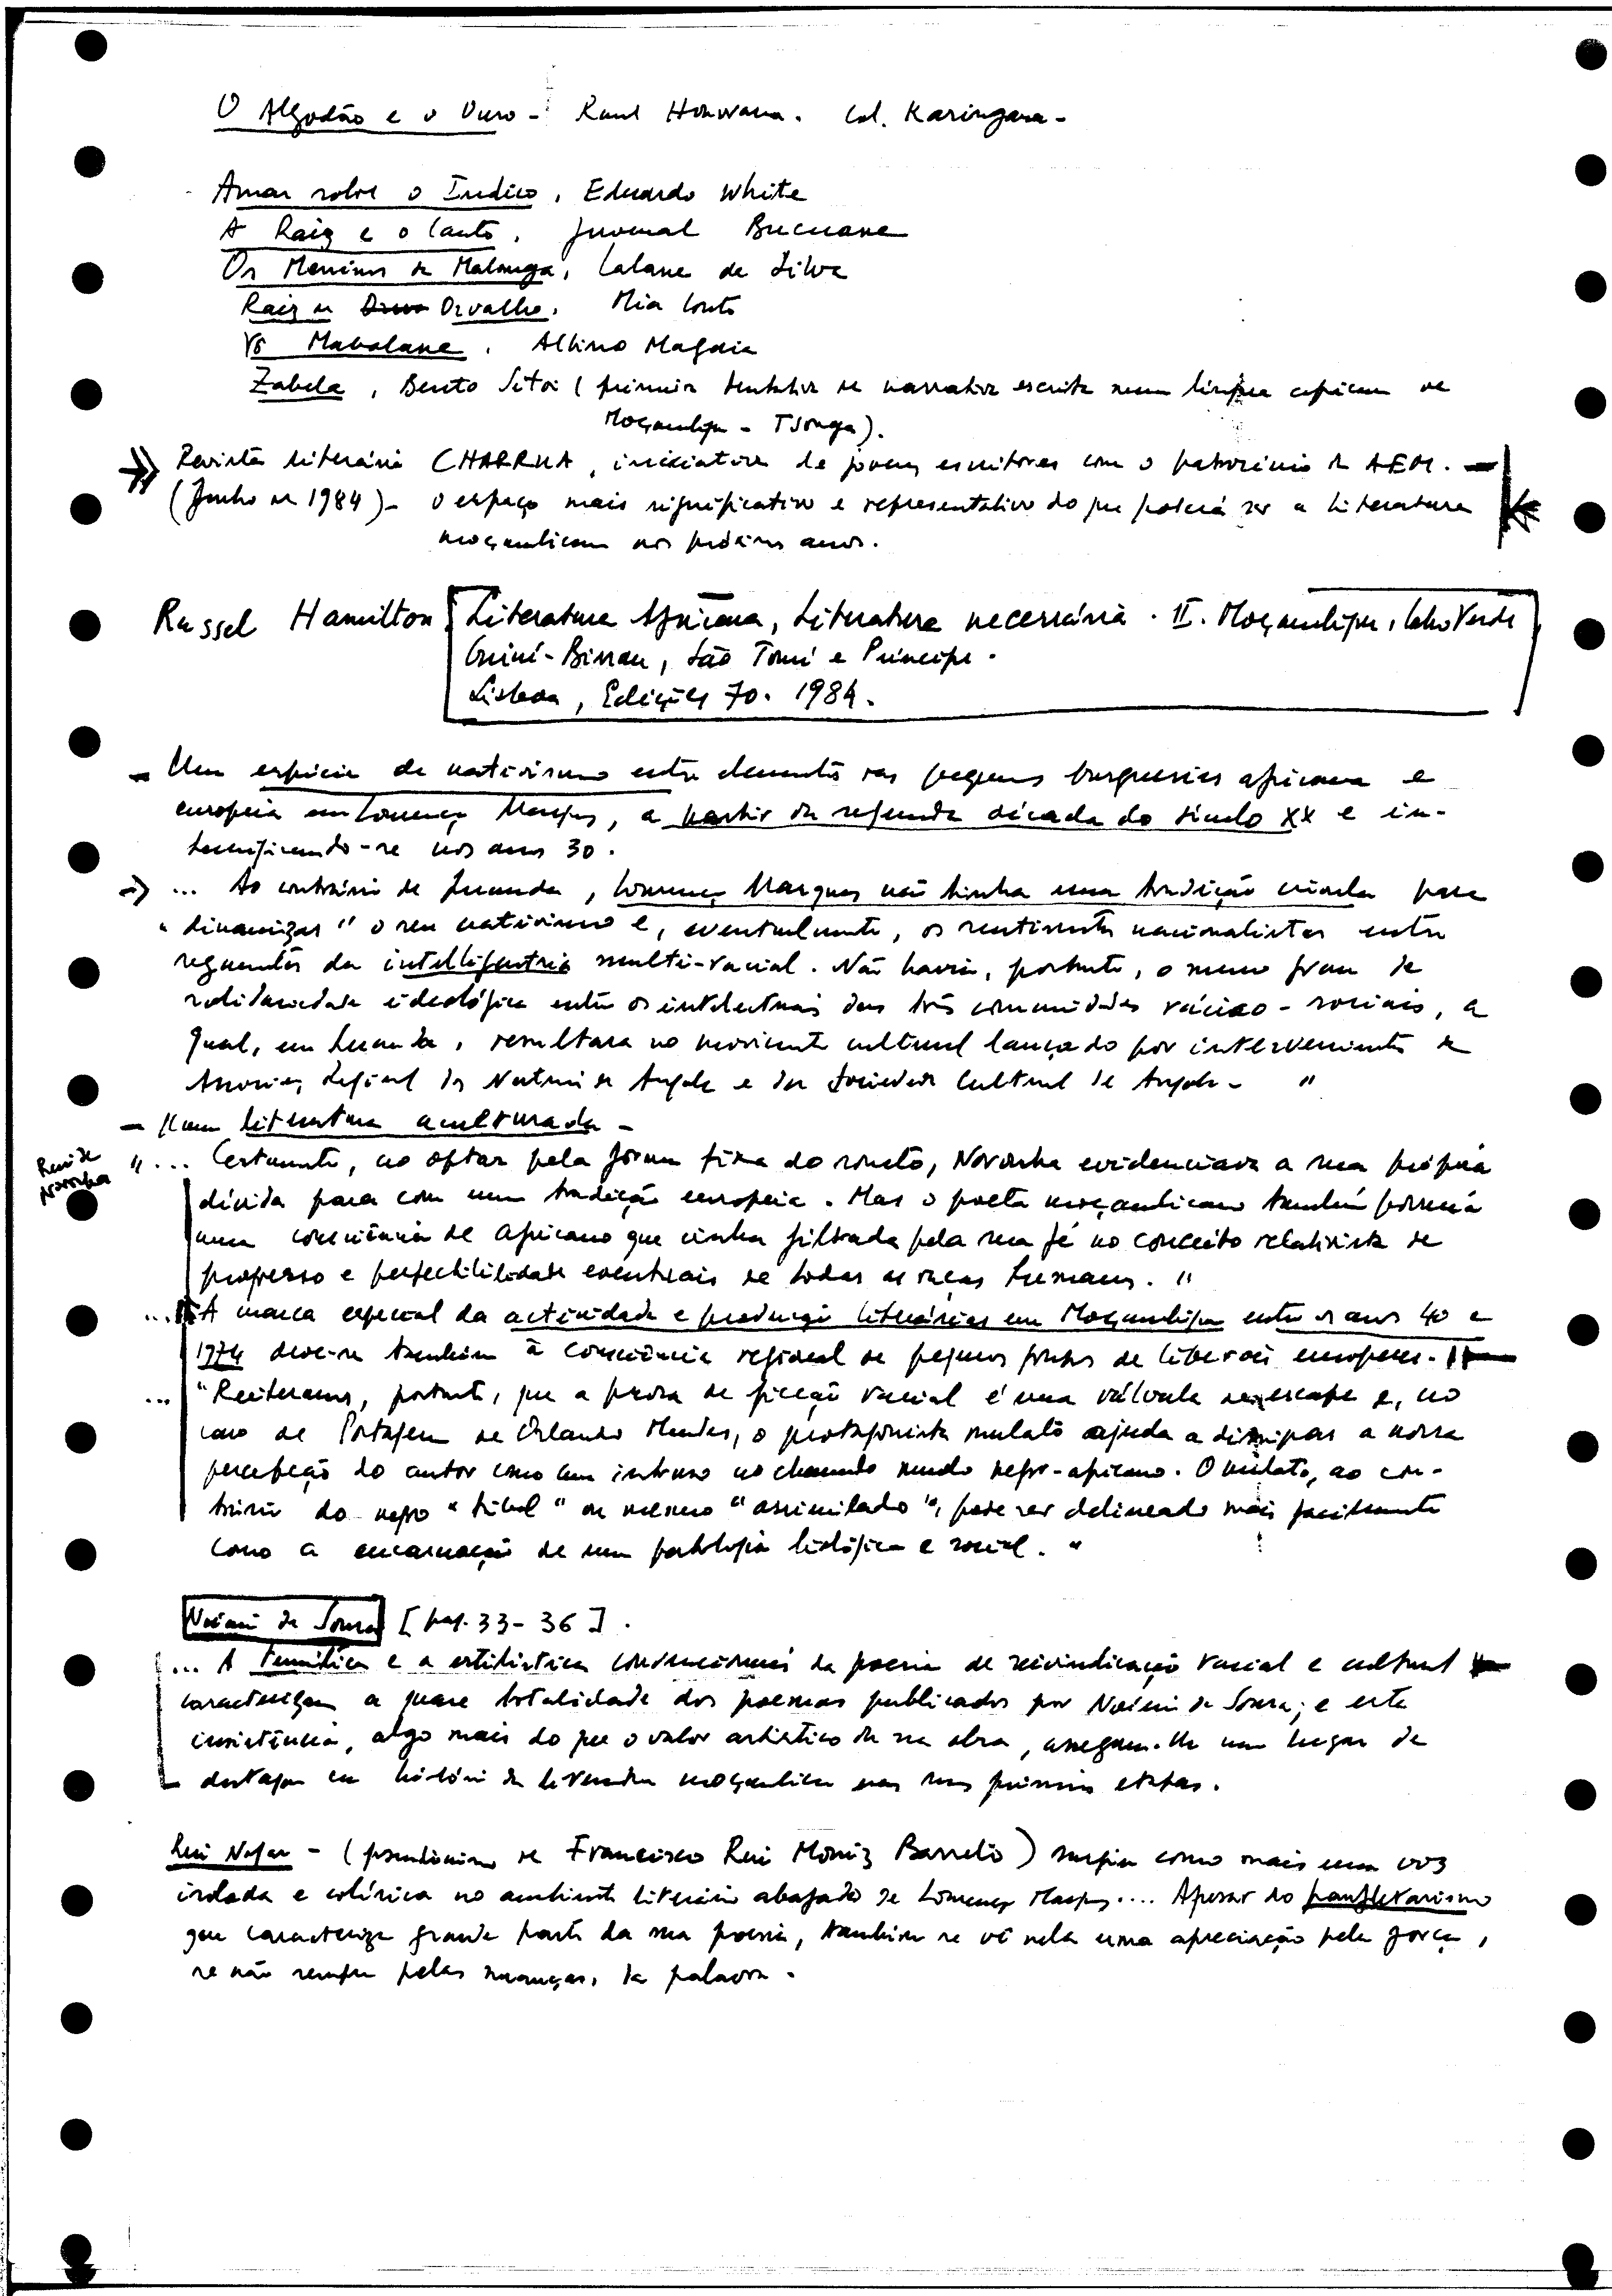 O Algodão e o Ouro - Raul Honwana. Col. Karingana -
Amar sobre o Indico, Eduardo White
A Raiz e o Canto, Juvenal Bucuane
Os Meninos de Malanga, Calane da Silva
Raiz de Orvalho, Mia Couto
Yô Mabalane, Albino Magaia
Zabela, Bento Sitoi (primeira tentativa de narrativa escrita numa língua africana de
Moçambique - Tsonga).
Revista literária CHARRUA, iniciativa de jovens escritores com o patrocínio da AEM. -
(Junho de 1984) - O espaço mais significativo e representativo do que poderá ser a Literatura
moçambicana nos próximos anos.
Russel Hamilton [Literatura Africana, Literatura necessária. II. Moçambique, Cabo Verde
Guiné-Bissau, São Tomé e Príncipe.
Lisboa, Edições 70. 1984.
- Uma espécie de nativismo entre elementos das pequenas burguesias africana e
europeia em Lourenço Marques, a partir da segunda década do século XX e in-
tensificando-se nos anos 30.
→ ... Ao contrário de Luanda, Lourenço Marques não tinha uma tradição crioula para
"dinamizar" o seu nativismo e, eventualmente, os sentimentos nacionalistas entre
segmentos da intelligentsia multi-racial. Não havia, portanto, o mesmo grau de
solidariedade ideológica entre os intelectuais das três comunidades rácico-sociais, a
qual, em Luanda, resultara no movimento cultural lançado por intervenientes da
Associação Regional dos Naturais de Angola e da Sociedade Cultural de Angola - "
- Numa literatura aculturada -
Rui de
Noronha
"... Certamente, ao optar pela forma fixa do soneto, Noronha evidenciava a sua própria
dívida para com uma tradição europeia. Mas o poeta moçambicano também possuía
uma consciência de africano que vinha filtrada pela sua fé no conceito relativista de
progresso e perfectibilidade eventuais de todas as raças humanas. "
... "A marca especial da actividade e produção literárias em Moçambique entre os anos 40 e
1974 deve-se também à consciência regional de pequenos grupos de liberais europeus. "
... "Reiteramos, portanto, que a prosa de ficção racial é uma válvula de escape e, no
caso de Portagem de Orlando Mendes, o protagonista mulato ajuda a dissipar a nossa
percepção do autor como um intruso no chamado mundo negro-africano. O mulato, ao con-
trário do negro "tribal" ou mesmo "assimilado", pode ser delineado mais facilmente
como a encarnação de uma patologia biológica e social. "
Noémia de Sousa [pag. 33-36].
... A temática e a estilística convencionais da poesia de reivindicação racial e cultural
caracterizam a quase totalidade dos poemas publicados por Noémia de Sousa; e esta
insistência, algo mais do que o valor artístico da sua obra, asseguram-lhe um lugar de
destaque na história da literatura moçambicana nas suas primeiras etapas.
Rui Nogar - (pseudónimo de Francisco Rui Moniz Barreto) surgiu como mais uma voz
isolada e colérica no ambiente literário abafado de Lourenço Marques.... Apesar do panfletarismo
que caracteriza grande parte da sua poesia, também se vê nela uma apreciação pela força,
se não sempre pelas nuanças, da palavra.